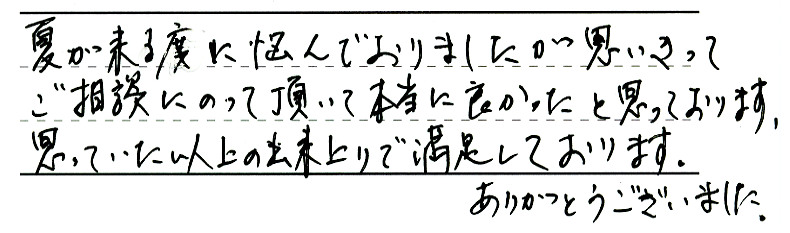 夏が来る度に悩んでおりましたが思いきって
ご相談にのって頂いて本当に良かったと思っております,
思っていた以上の出来上りで満足しております.
ありがとうございました.